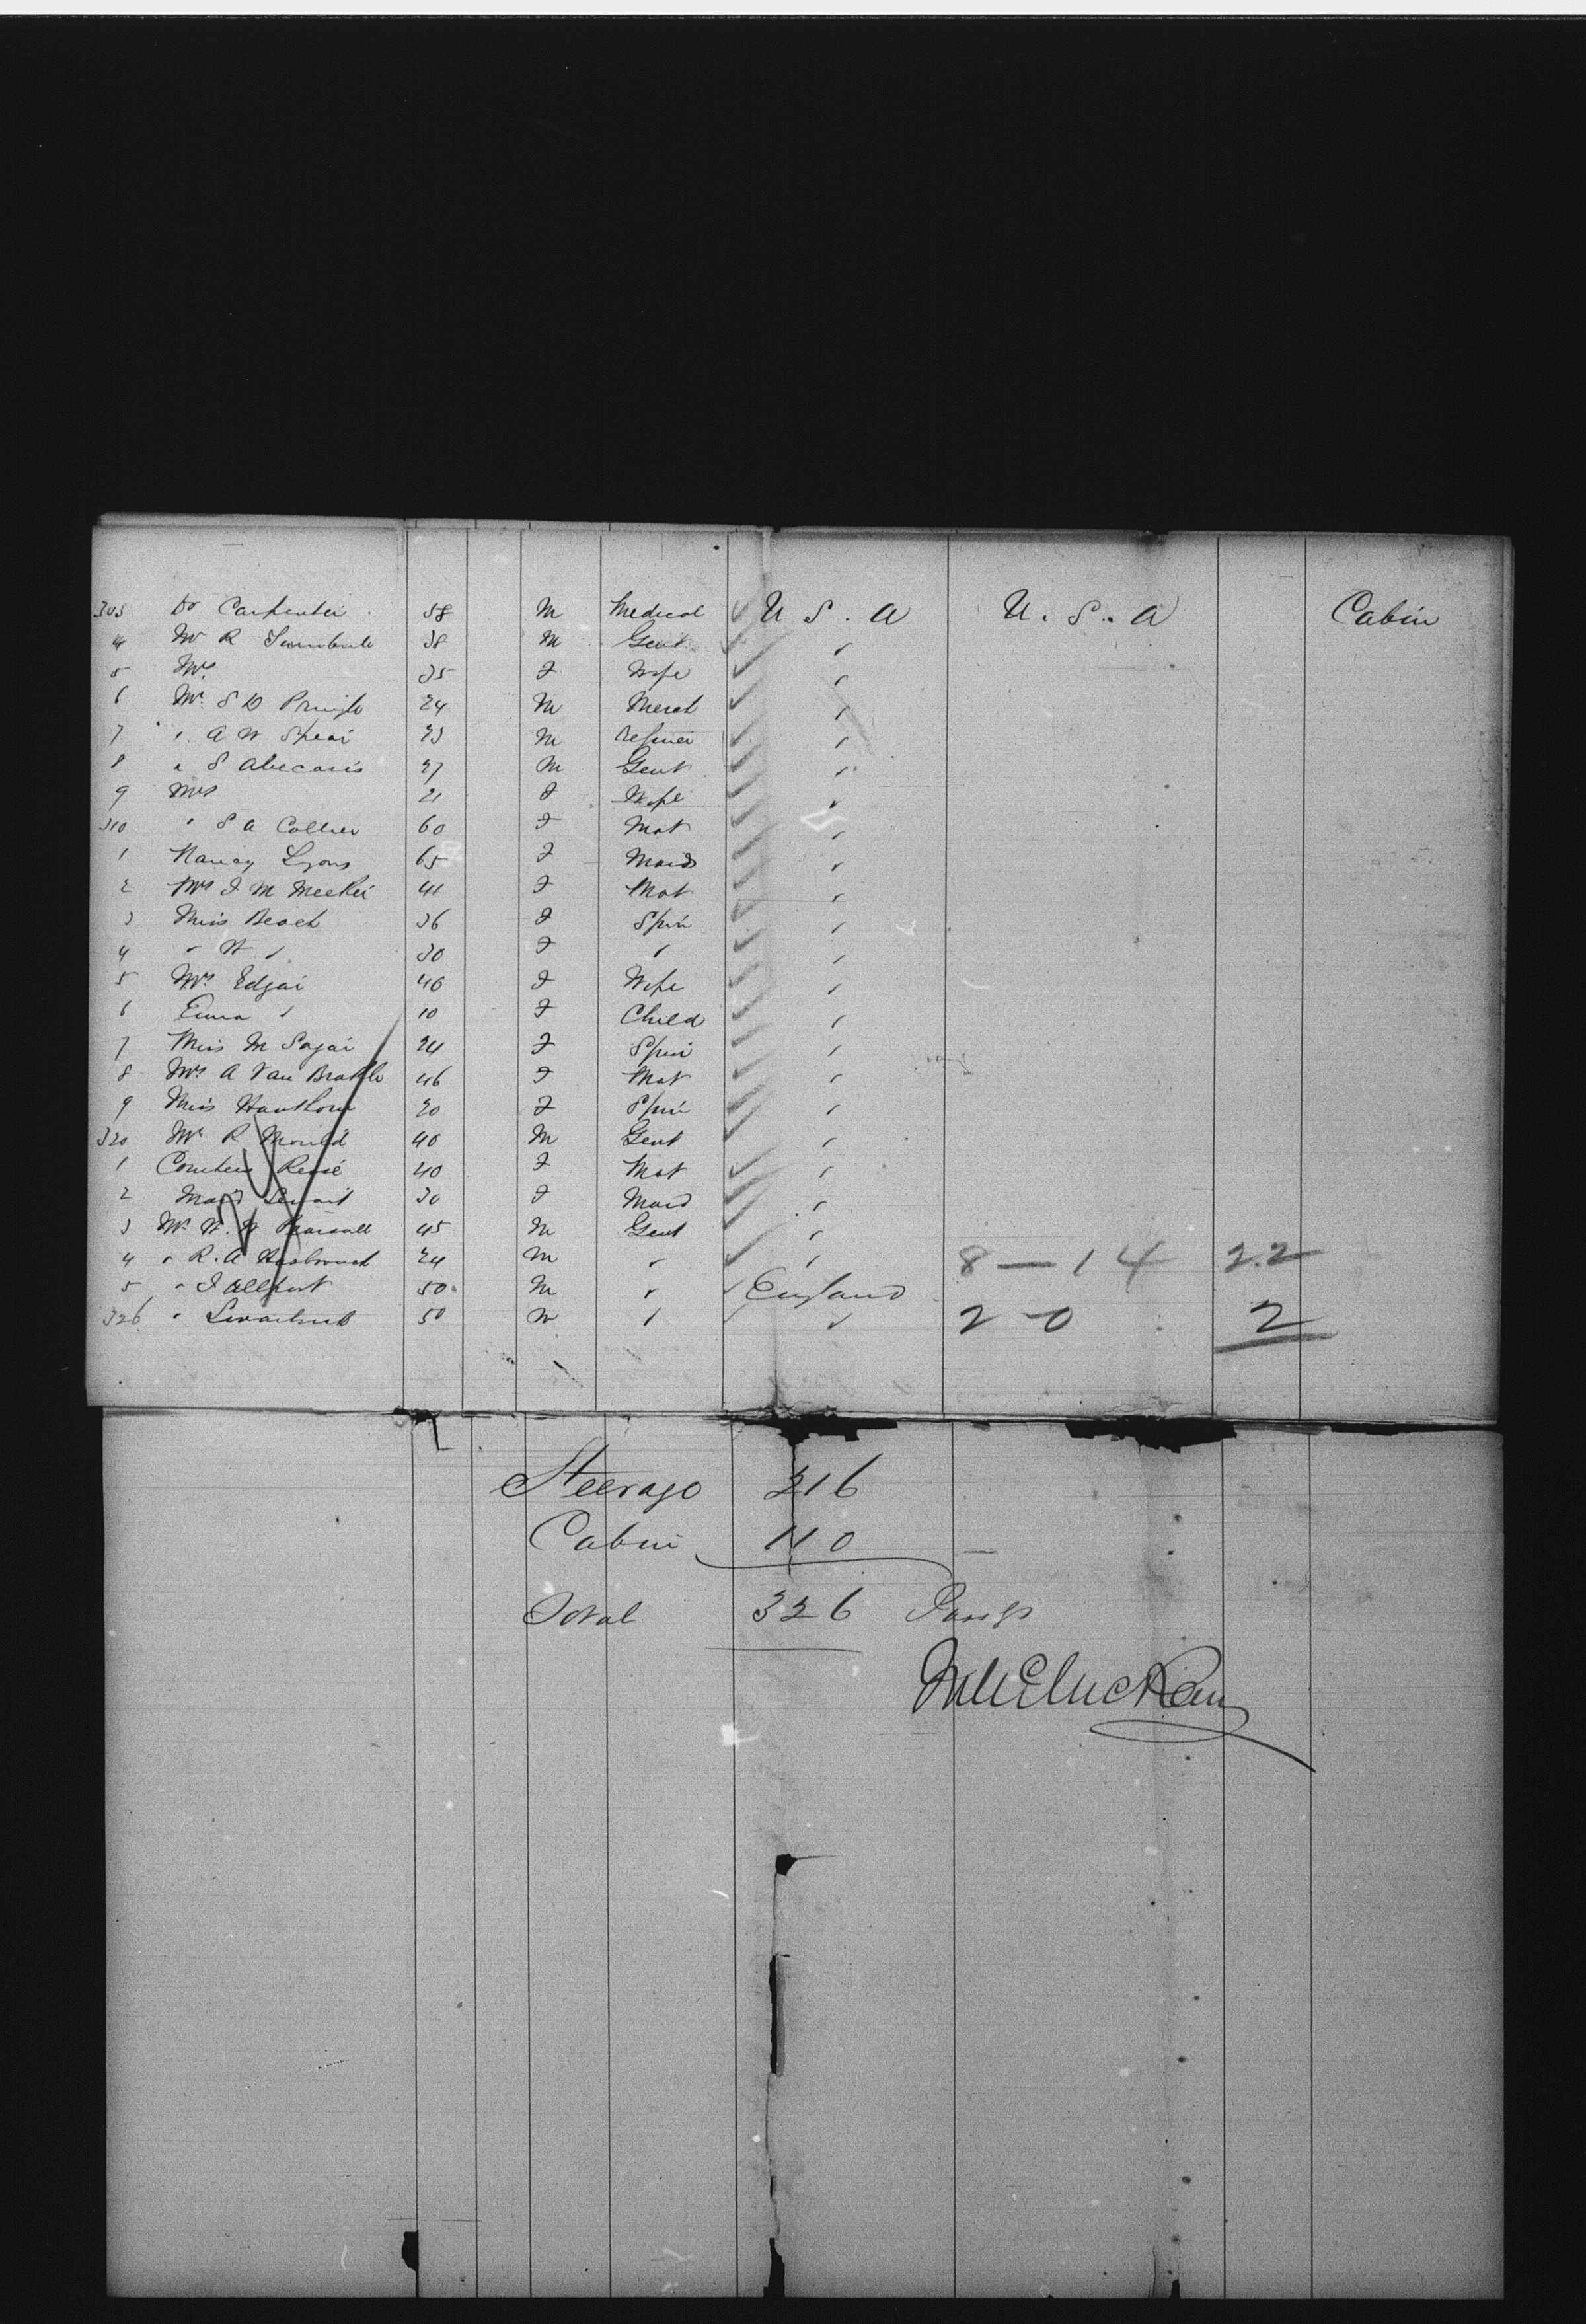 303 Dr Carpenter 58 M Medical U S. A U. S. A Cabin
4 Mr R 38 M Gent "
5 Mrs 35 F Wife "
6 Mr S D Pringle 24 M Merct "
7 " A W Spear 23 M Refiner "
8 " S Abecasis 27 M Gent "
9 Mrs 21 F Wife "
310 " S A Collier 60 F Mat "
1 Nancy Lyons 65 F Maid "
2 Mrs J M Meeker 41 F Mat "
3 Miss Beach 36 F Spin "
4 " H " 30 F " "
5 Mrs Edgar 40 F Wife "
6 Emma " 10 F Child "
7 Miss M 24 F Spin "
8 Mrs A Van 46 F Mat "
9 Miss Hawthorn 20 F Spin "
320 Mr R Mould 40 M Gent "
1 40 F Mat "
2 Maid Servant 30 F Maid "
3 Mr W. H Pearsall 45 M Gent "
4 " R. A Hasbrouck 24 M " " 8 — 14 22
5 " J Allport 50 M " England
326 " 50 M " " 2 - 0 2
Steerage 216
Cabin 110
Total 326